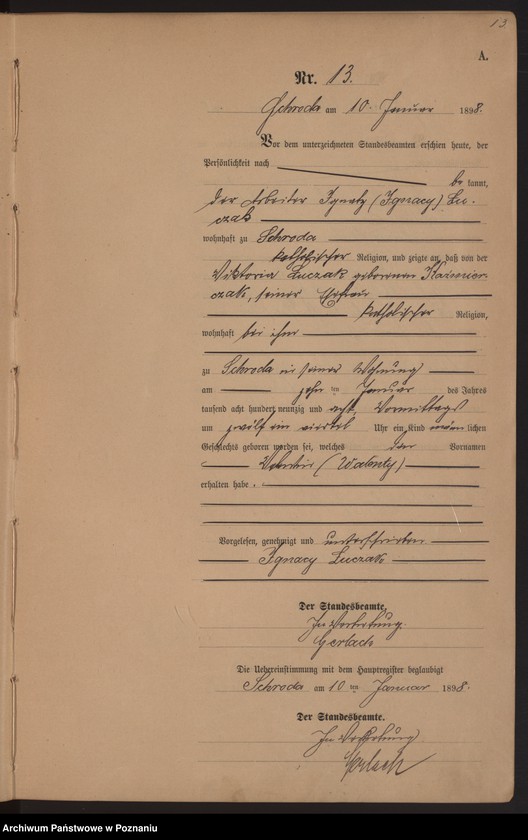 13
A.
Nr. 13.
Schroda am 10. Januar 1898.
Vor dem unterzeichneten Standesbeamten erschien heute, der
Persönlichkeit nach
be kannt,
der Arbeiter Ignatz (Ignacy) Lu-
czak
wohnhaft zu Schroda
katholischer Religion, und zeigte an, daß von der
Viktoria Luczak geborenen Kazmier-
czak, seiner Ehefrau
katholischer Religion,
wohnhaft bei ihm
zu Schroda in seiner Wohnung
am zehn ten Januar des Jahres
tausend acht hundert neunzig und acht Vormittags
um zwölf ein viertel Uhr ein Kind männ lichen
Geschlechts geboren worden sei, welches den Vornamen
Valentin (Walenty)
erhalten habe.
Vorgelesen, genehmigt und unterschrieben
Ignacy Luczak
Der Standesbeamte,
In Vertretung.
Gerlach
Die Uebereinstimmung mit dem Hauptregister beglaubigt
Schroda am 10 ten Januar 1898.
Der Standesbeamte.
In Vertretung
Gerlach
Archiwum Państwowe w Poznaniu